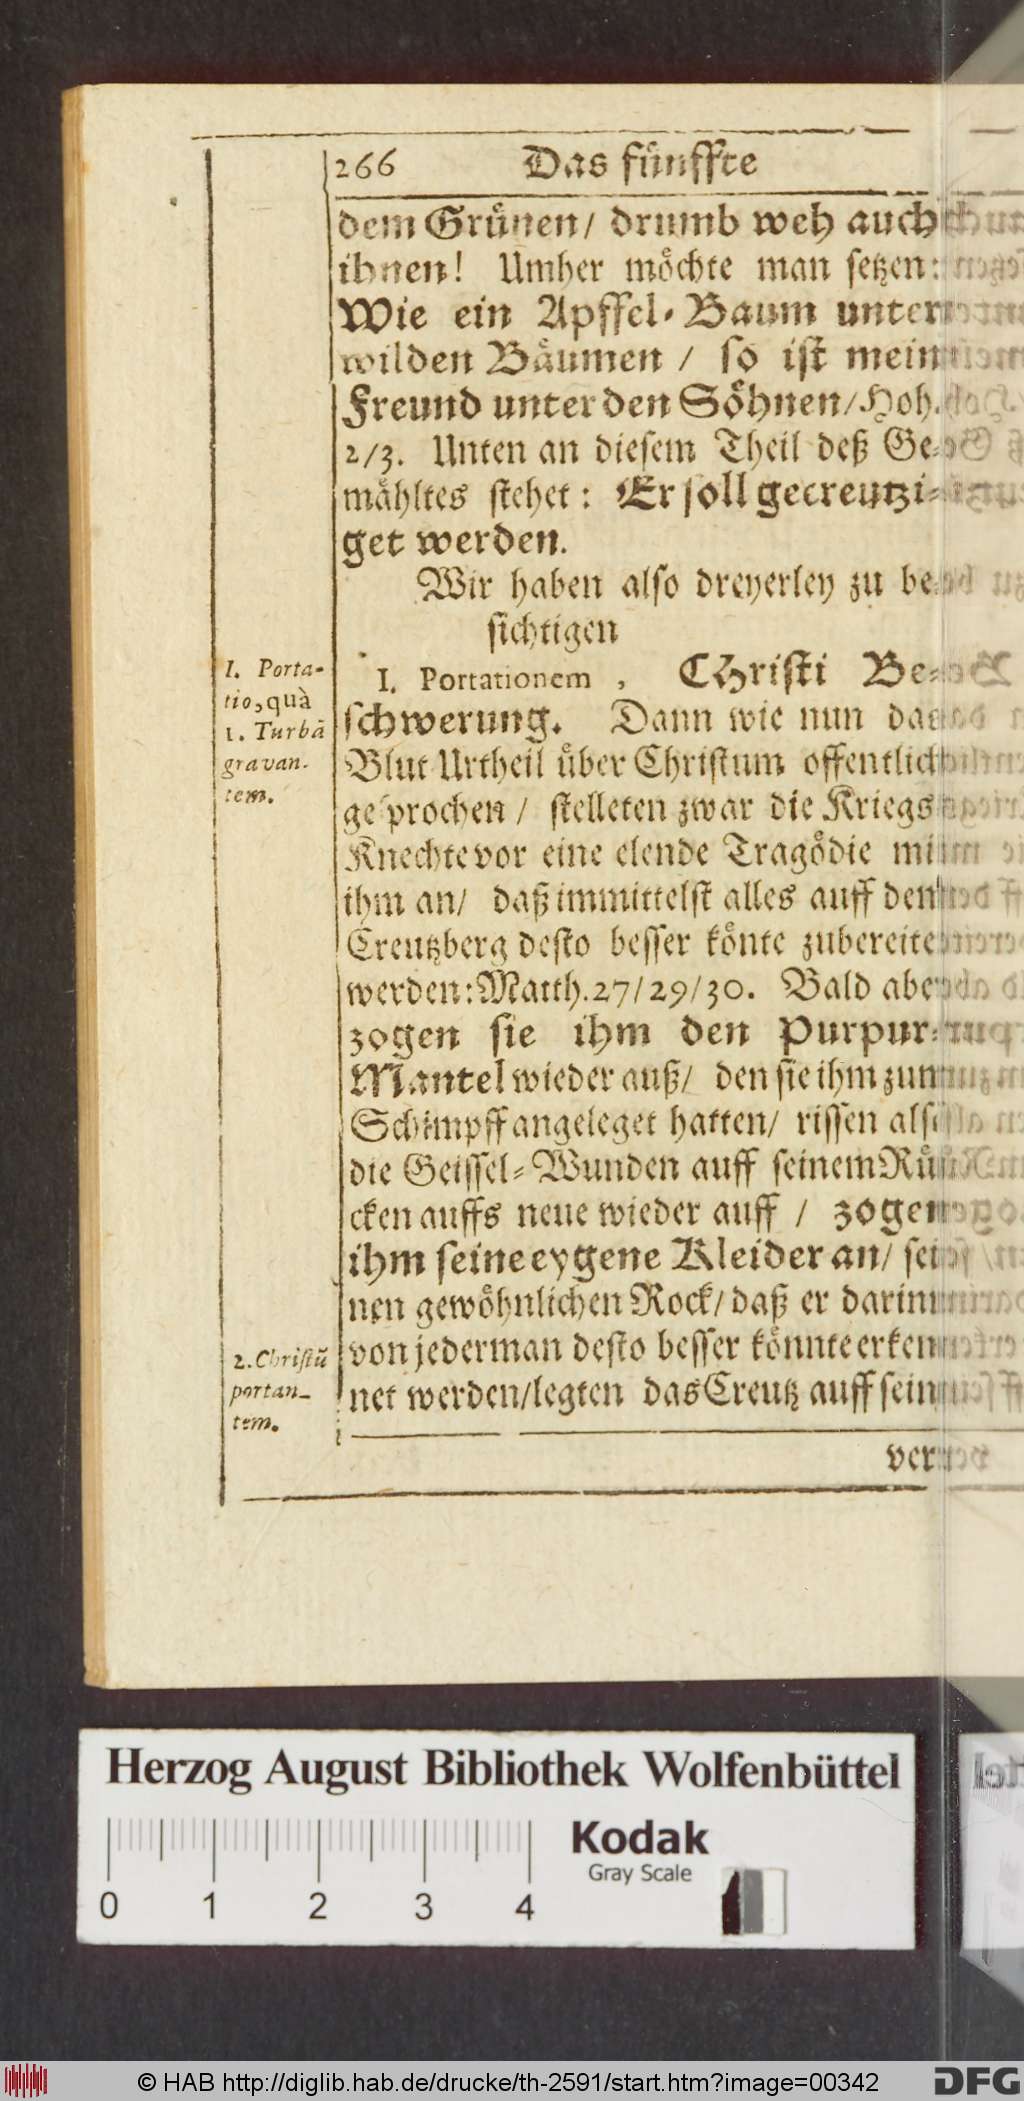 266 Das fünffte
dem Grünen/ drumb weh auch
ihnen! Umher möchte man setzen:
Wie ein Apffel-Baum unter
wilden Bäumen / so ist mein
Freund unter den Söhnen/Hoh.
2/3. Unten an diesem Theil deß Ge-
mähltes stehet: Er soll gecreutzi-
get werden.
Wir haben also dreyerley zu be-
sichtigen
I. Porta-
tio, quà
1. Turbā
gravan-
tem.
I. Portationem, CHristi Be-
schwerung. Dann wie nun das
Blut Urtheil über Christum offentlich
gesprochen / stelleten zwar die Kriegs
Knechte vor eine elende Tragödie mit
ihm an/ daß immittelst alles auff den
Creutzberg desto besser könte zubereitet
werden: Matth. 27/29/30. Bald aber
zogen sie ihm den Purpur-
Mantel wieder auß/ den sie ihm zum
Schimpff angeleget hatten/ rissen also
die Geissel-Wunden auff seinem Rü-
cken auffs neue wieder auff / zogen
ihm seine eygene Kleider an/ sei-
nen gewöhnlichen Rock/ daß er darinn
von jederman desto besser könnte erken-
net werden/legten das Creutz auff sein
2. Christū
portan-
tem.
ver-
Herzog August Bibliothek Wolfenbüttel
Kodak
Gray Scale
0 1 2 3 4
© HAB http://diglib.hab.de/drucke/th-2591/start.htm?image=00342
DFG